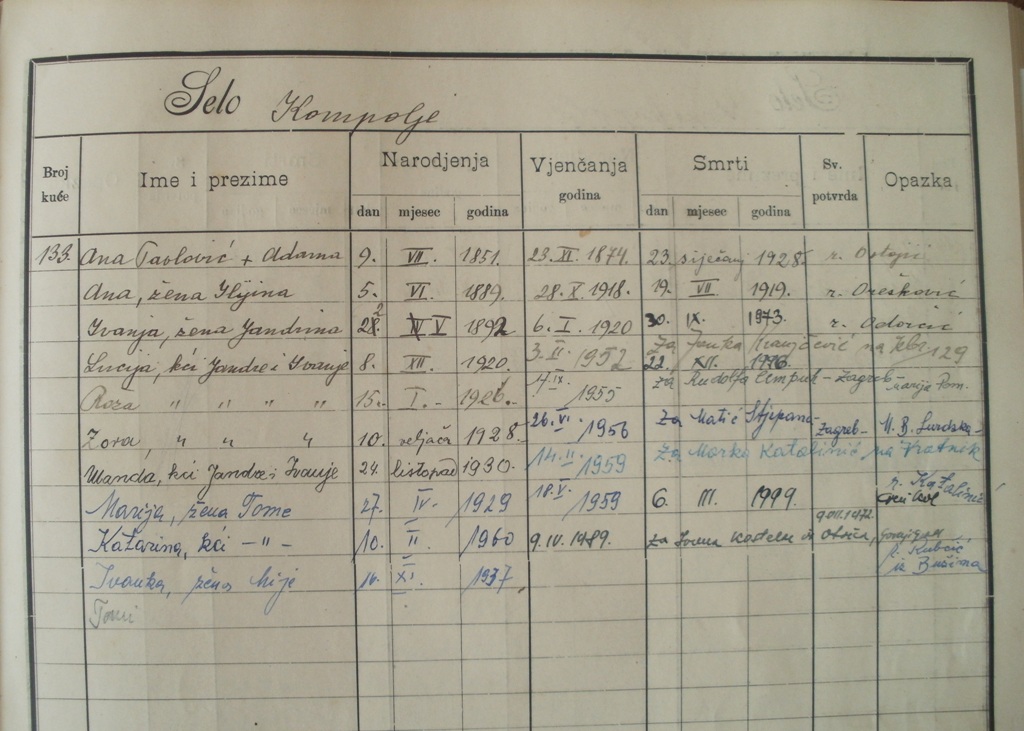 Selo Kompolje
Broj kuće Ime i prezime Narodjenja Vjenčanja godina Smrti Sv. potvrda Opazka
dan mjesec godina dan mjesec godina
133. Ana Pavlović + Adama 9. VII. 1851. 23. XI. 1874. 23. siječanj 1928. r. Ostojić
Ana, žena Ilijina 5. VI. 1889. 28. X. 1918. 19. VII. 1919. r. Orešković
Ivanja, žena Jandrina V 1892 6. I. 1920 30. IX. 1973. r. Odorčić
Lucija, kći Jandre i Ivanje 8. XII. 1920. 3. II. 1952 za Kranjčević na kbr 129
22. XII. 1996.
Roza " " " " 15. I. - 1926. 1955 za Rudolfa - Zagreb - Marija Pom.
Zora, " " " 10. veljače 1928. 26. VI. 1956 za Matić Stjepana - Zagreb - M. B. Lurdska -
Manda, kći Jandre i Ivanje 24. listopad 1930. 14. II. 1959 za Marka Katalinić na Vratnik
Marija, žena Tome 27. IV. 1929 18. V. 1959 6. III. 1999. r. Katalinić
Katarina, kći - " - 10. II. 1960 9. IV. 1989. 9. VII. 1972.
za Kostelu iz Otočca,
Ivanka, žena Mije XI. 1937 r. Kubčić
iz Bužima
Tomi